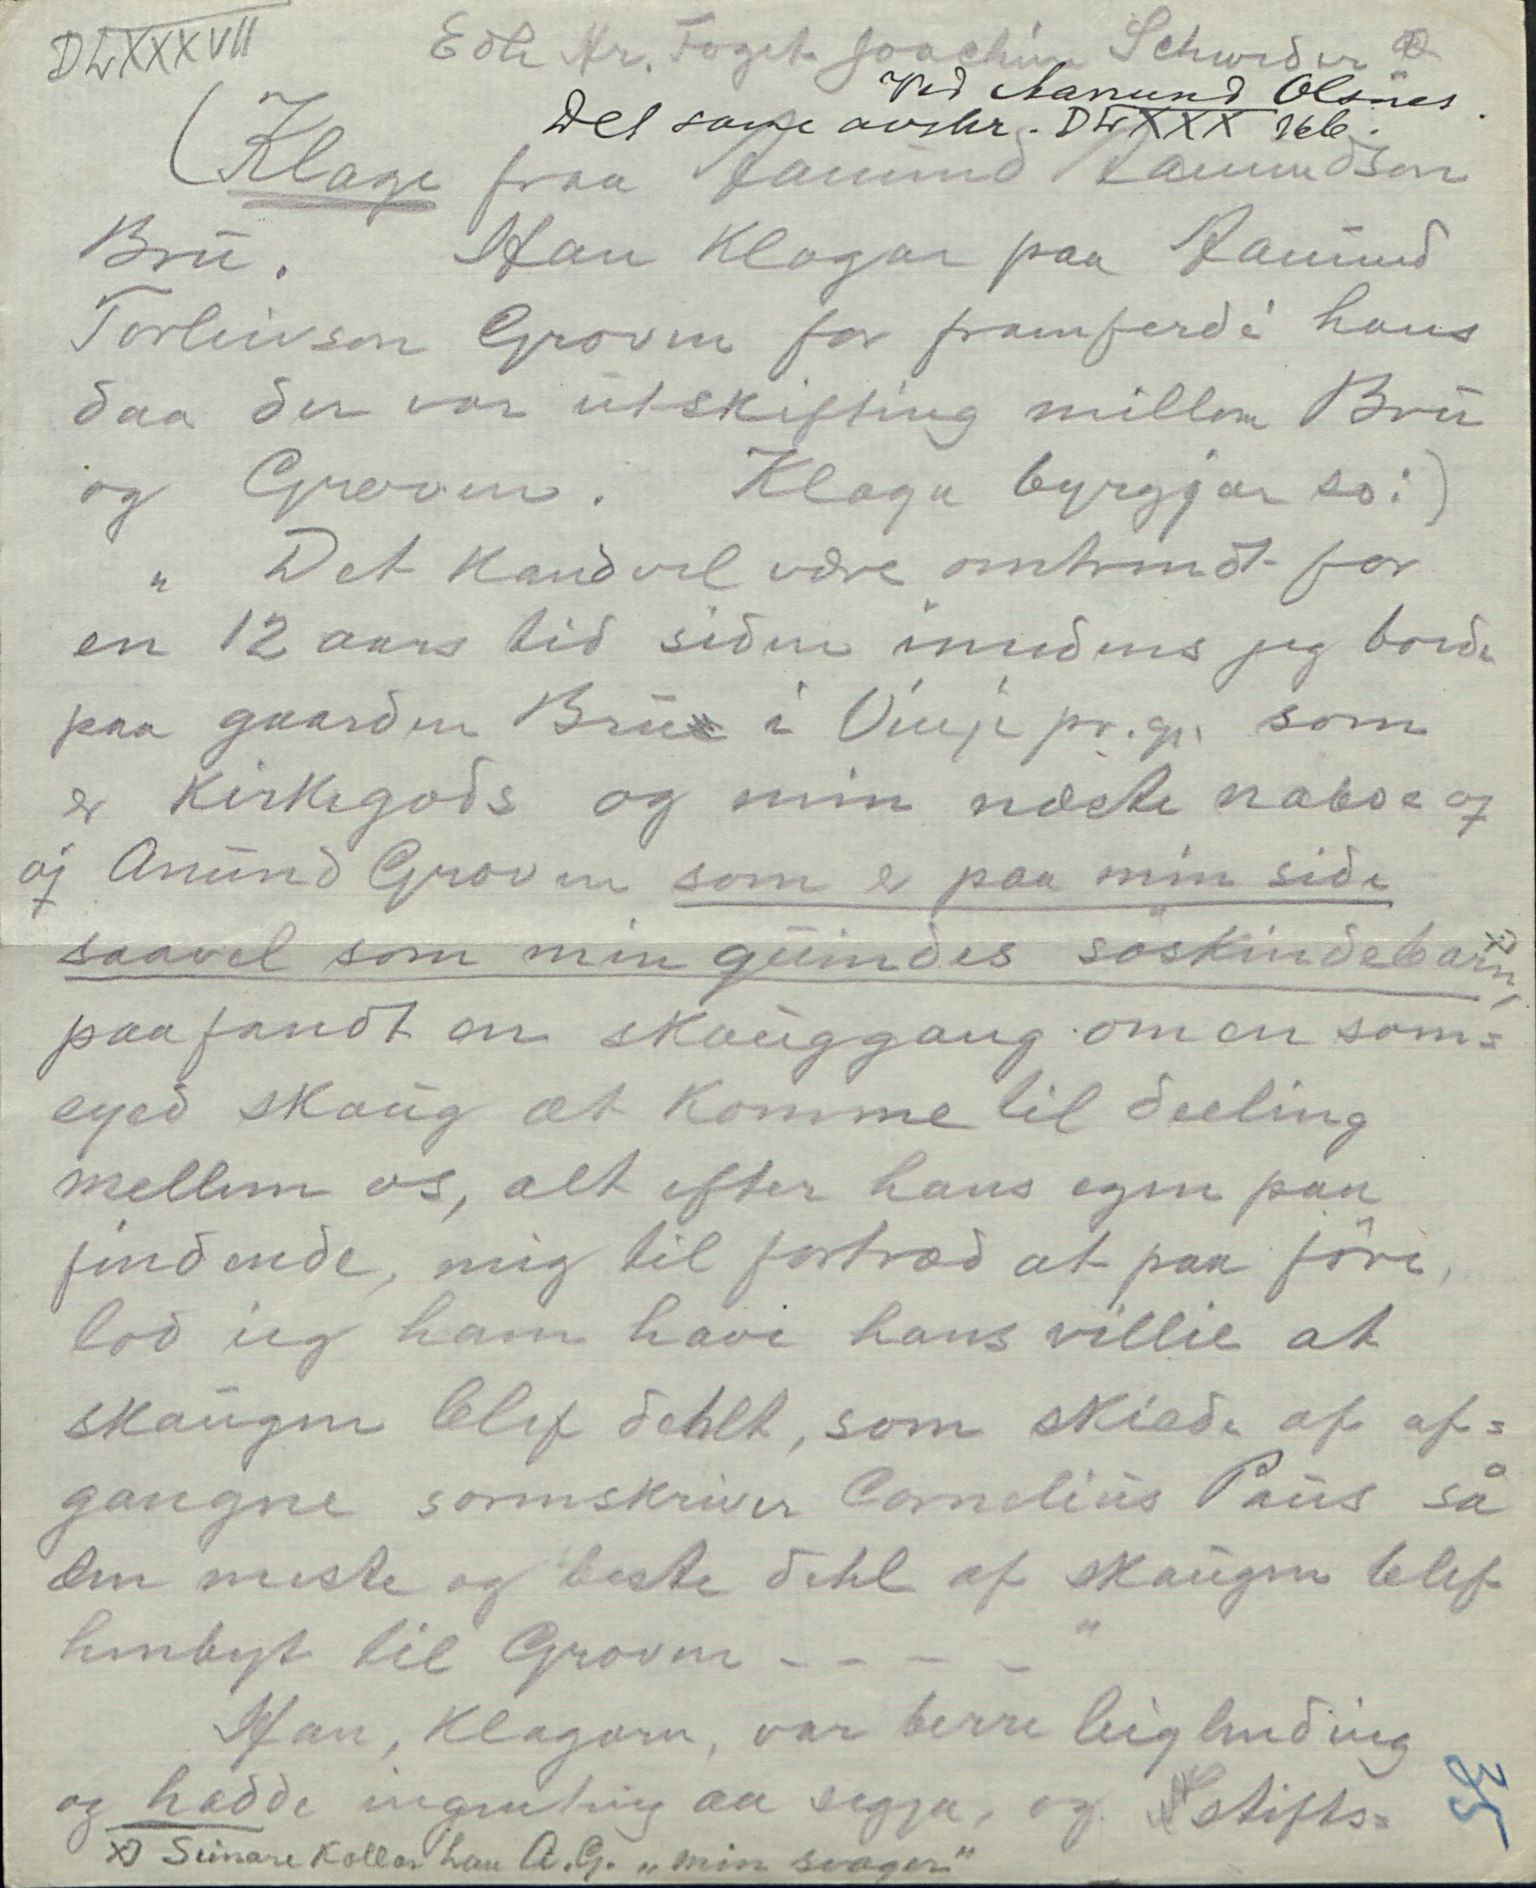 DLXXXVII
Edle Hr. Foget Joachim Schweder
Ved Aamund Olsnes.
Det same avskr. DLXXX 166.
(Klage fraa Aamund Aamundson
Bru. Han klagar paa Aamund
Torleivson Groven for framferdi hans
daa der var utskifting millom Bru
og Groven. Klaga byrgjar so:)
„ Det kand vel være omtrendt for
en 12 aars tid siden imedens jeg boede
paa gaarden Bru i Vinje pr.gj. som
er kirkegods og min næste naboe og
Anund Groven som er paa min side
saavel som min quindes söskindebarn x),
paafandt en skauggang om en som=
eyed skaug at komme til deeling
mellem os, alt efter hans egen paa
findende, mig til fortræd at paa före,
lod ieg ham have hans villie at
skaugen blef dehlt, som skiede af af=
gangne sorenskriver Cornelius Paus så
den meste og beste dehl af skaugen blef
henbyt til Groven - - - - "
Han, klagaren, var berre leiglending
og hadde ingenting aa segja, og Stifts=
x) Seinare kallar han A.G. „min svager"